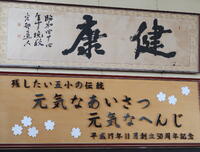 健康
残したい五小の伝統
元気なあいさつ
元気なへんじ
平成17年11月創立50周年記念